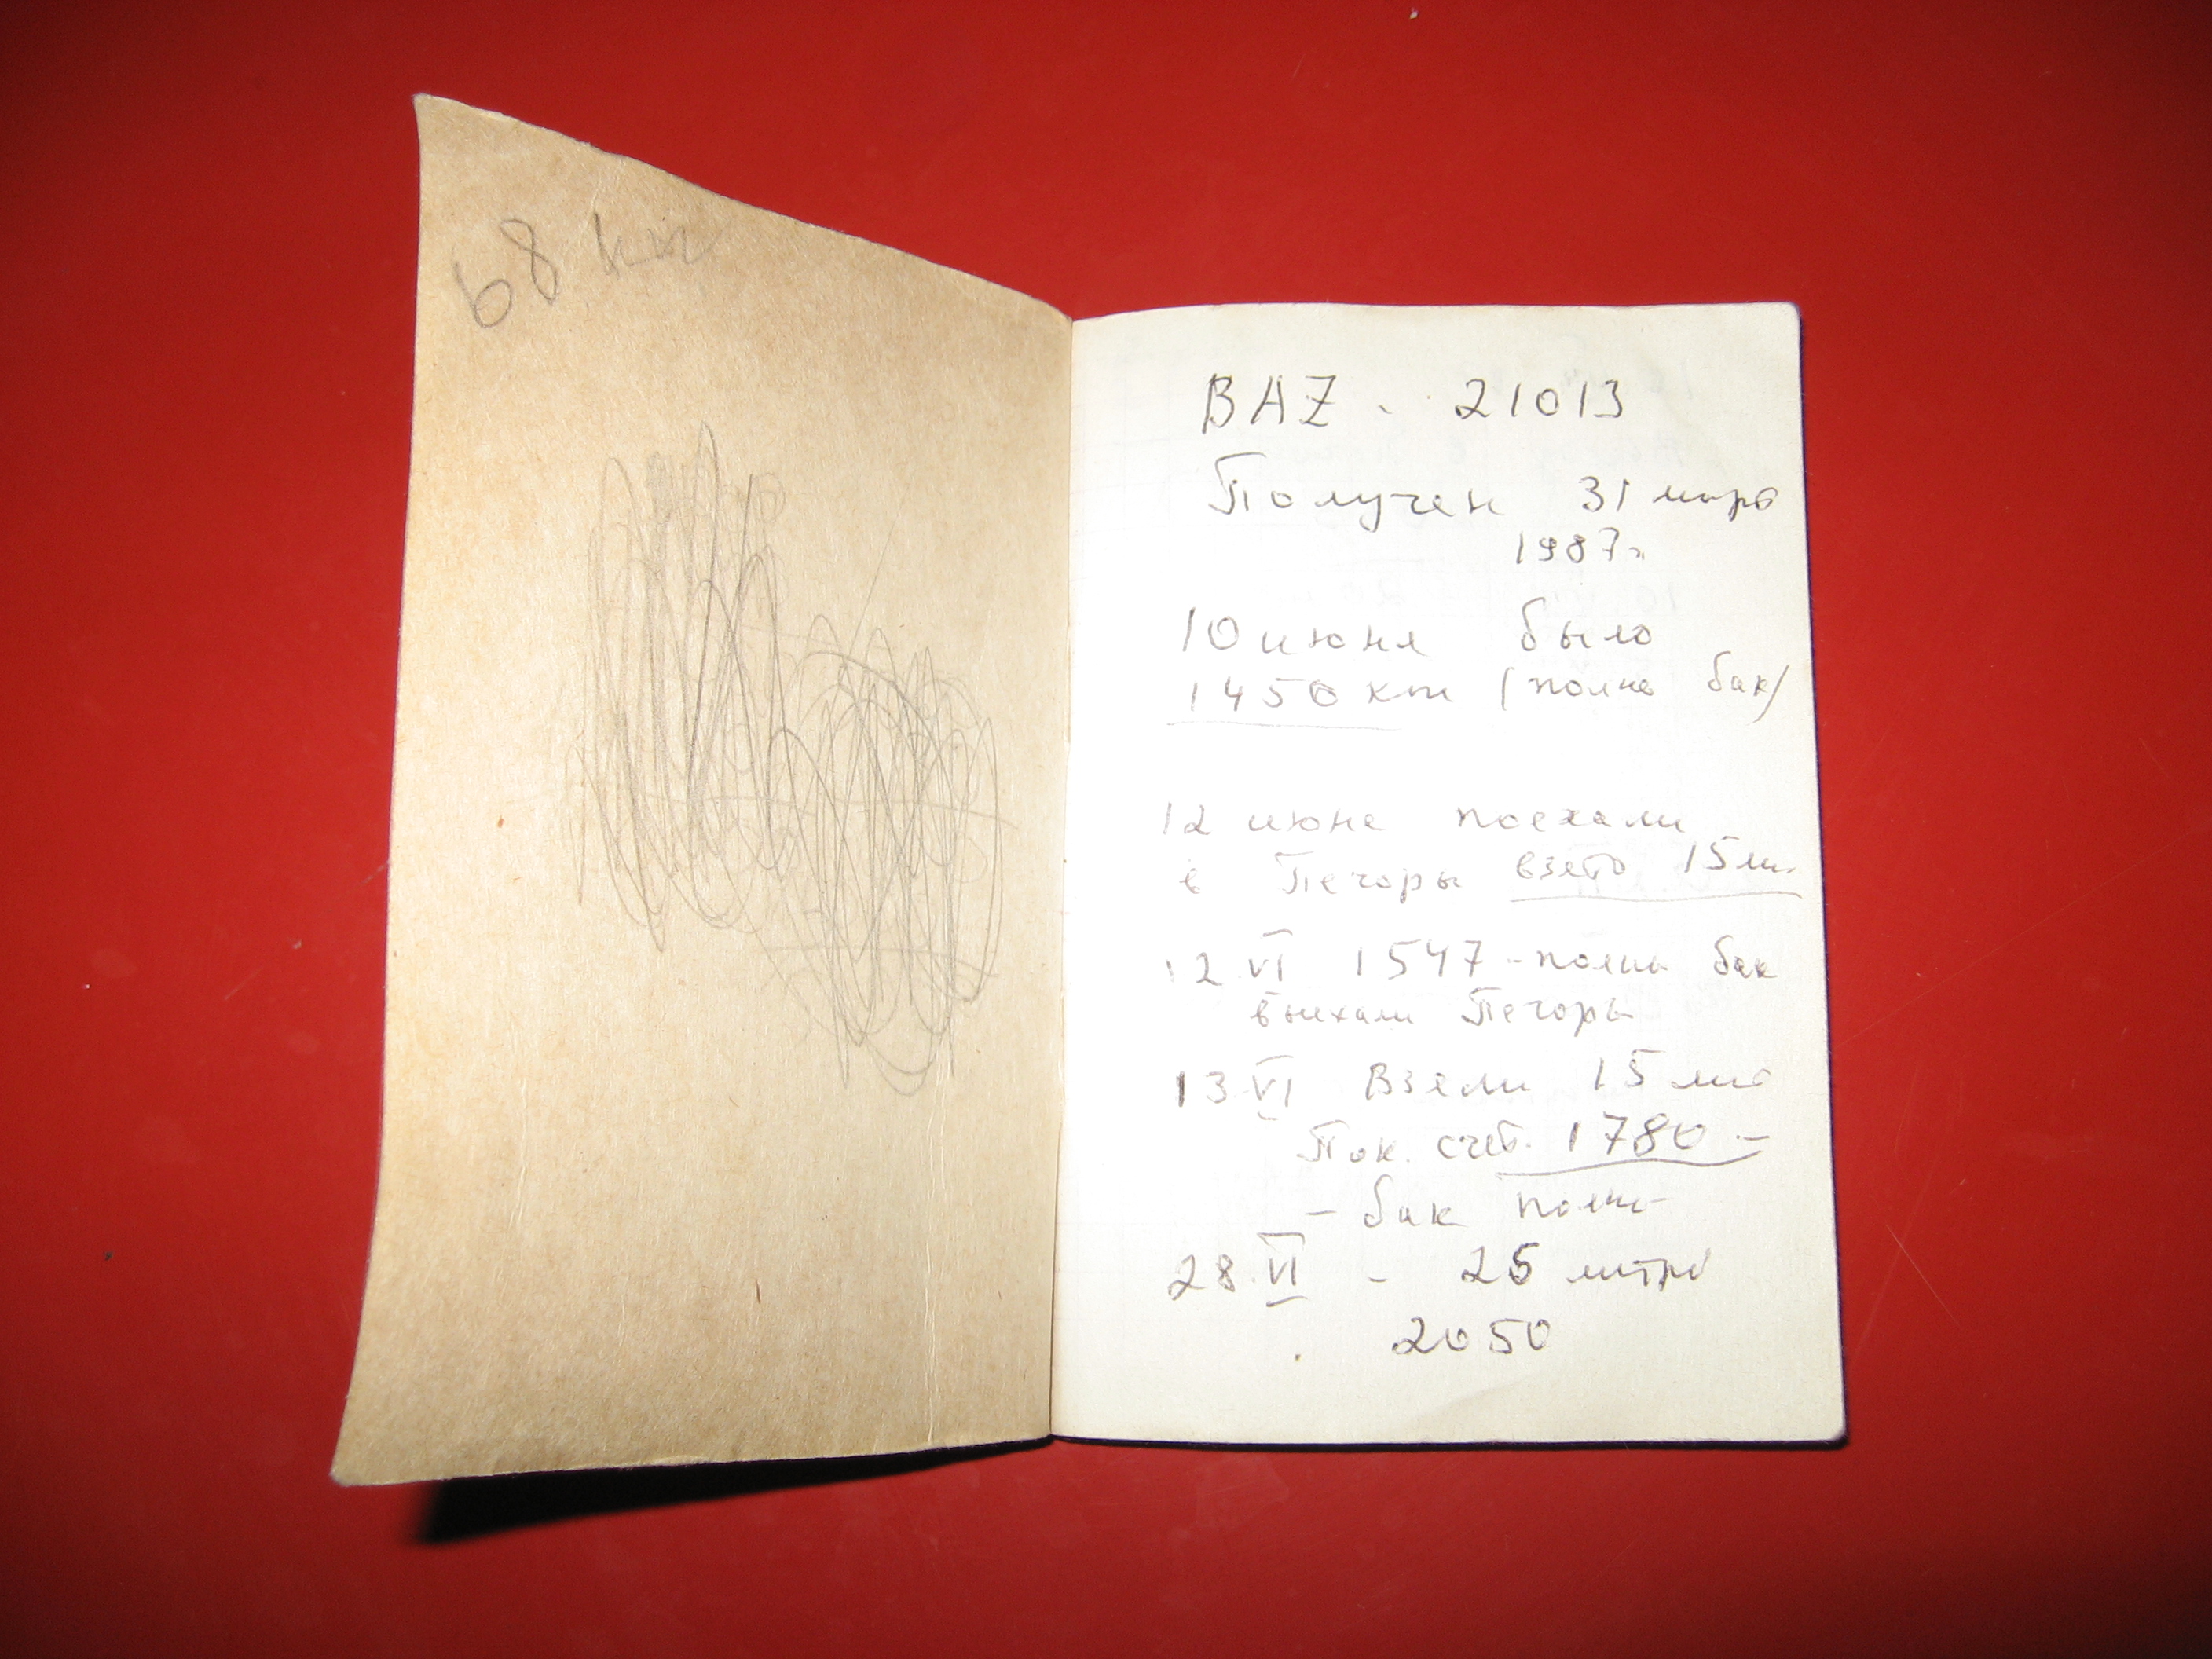 68 км
ВАZ - 21013
Получен 31 мар
1987г.
10 июня было
1450 км (полно бак)
12 июня поехали
в Печоры взято 15 ли.
12 VI 1547 - полны бак
выехали Печоры
13 VI Взяли 15 ли
Пок. счет. 1780 -
- бак полно
28 VI - 25 литро
2050